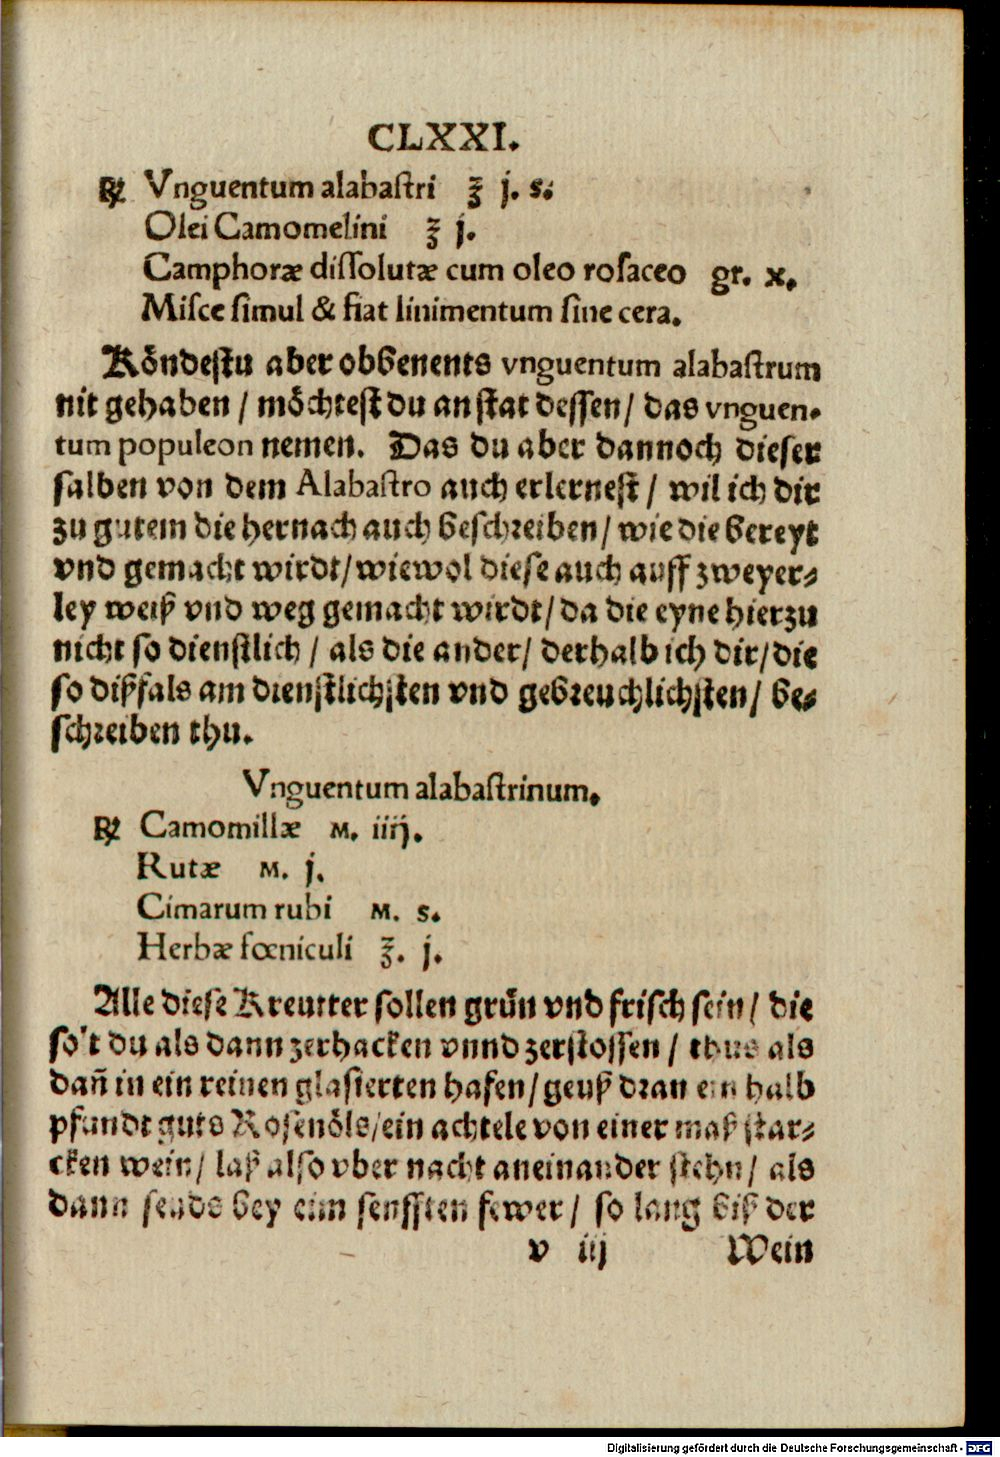 CLXXI.
℞ Vnguentum alabaſtri ℥ j. s.
Olei Camomelini ℥ j.
Camphoræ diſſolutæ cum oleo roſaceo gr. x.
Miſce ſimul & fiat linimentum ſine cera.
Koͤndeſtu aber obbenents vnguentum alabaſtrum
nit gehaben / moͤchteſt du an ſtat deſſen / das vnguen-
tum populeon nemen. Das du aber dannoch dieſer
ſalben von dem Alabaſtro auch erlerneſt / wil ich dir
zu gutem die hernach auch beſchreiben / wie die bereyt
vnd gemacht wirdt / wiewol dieſe auch auff zweyer-
ley weiß vnd weg gemacht wirdt / da die eyne hierzu
nicht ſo dienſtlich / als die ander / derhalb ich dir / die
ſo dißfals am dienſtlichſten vnd gebreuchlichſten / be-
ſchreiben thu.
Vnguentum alabaſtrinum.
℞ Camomillæ M. iiij.
Rutæ M. j.
Cimarum rubi M. s.
Herbæ fœniculi ℥. j.
Alle dieſe Kreutter ſollen gruͤn vnd friſch ſein / die
ſolt du als dann zerhacken vnnd zerſtoſſen / thus als
dañ in ein reinen glaſierten hafen / geuß dran ein halb
pfundt guts Roſenoͤls / ein achtele von einer maß ſtar-
cken wein / laß alſo vber nacht aneinander ſtehn / als
dann ſeuds bey eim ſenfften fewer / ſo lang biß der
v iij Wein
Digitalisierung gefördert durch die Deutsche Forschungsgemeinschaft - DFG